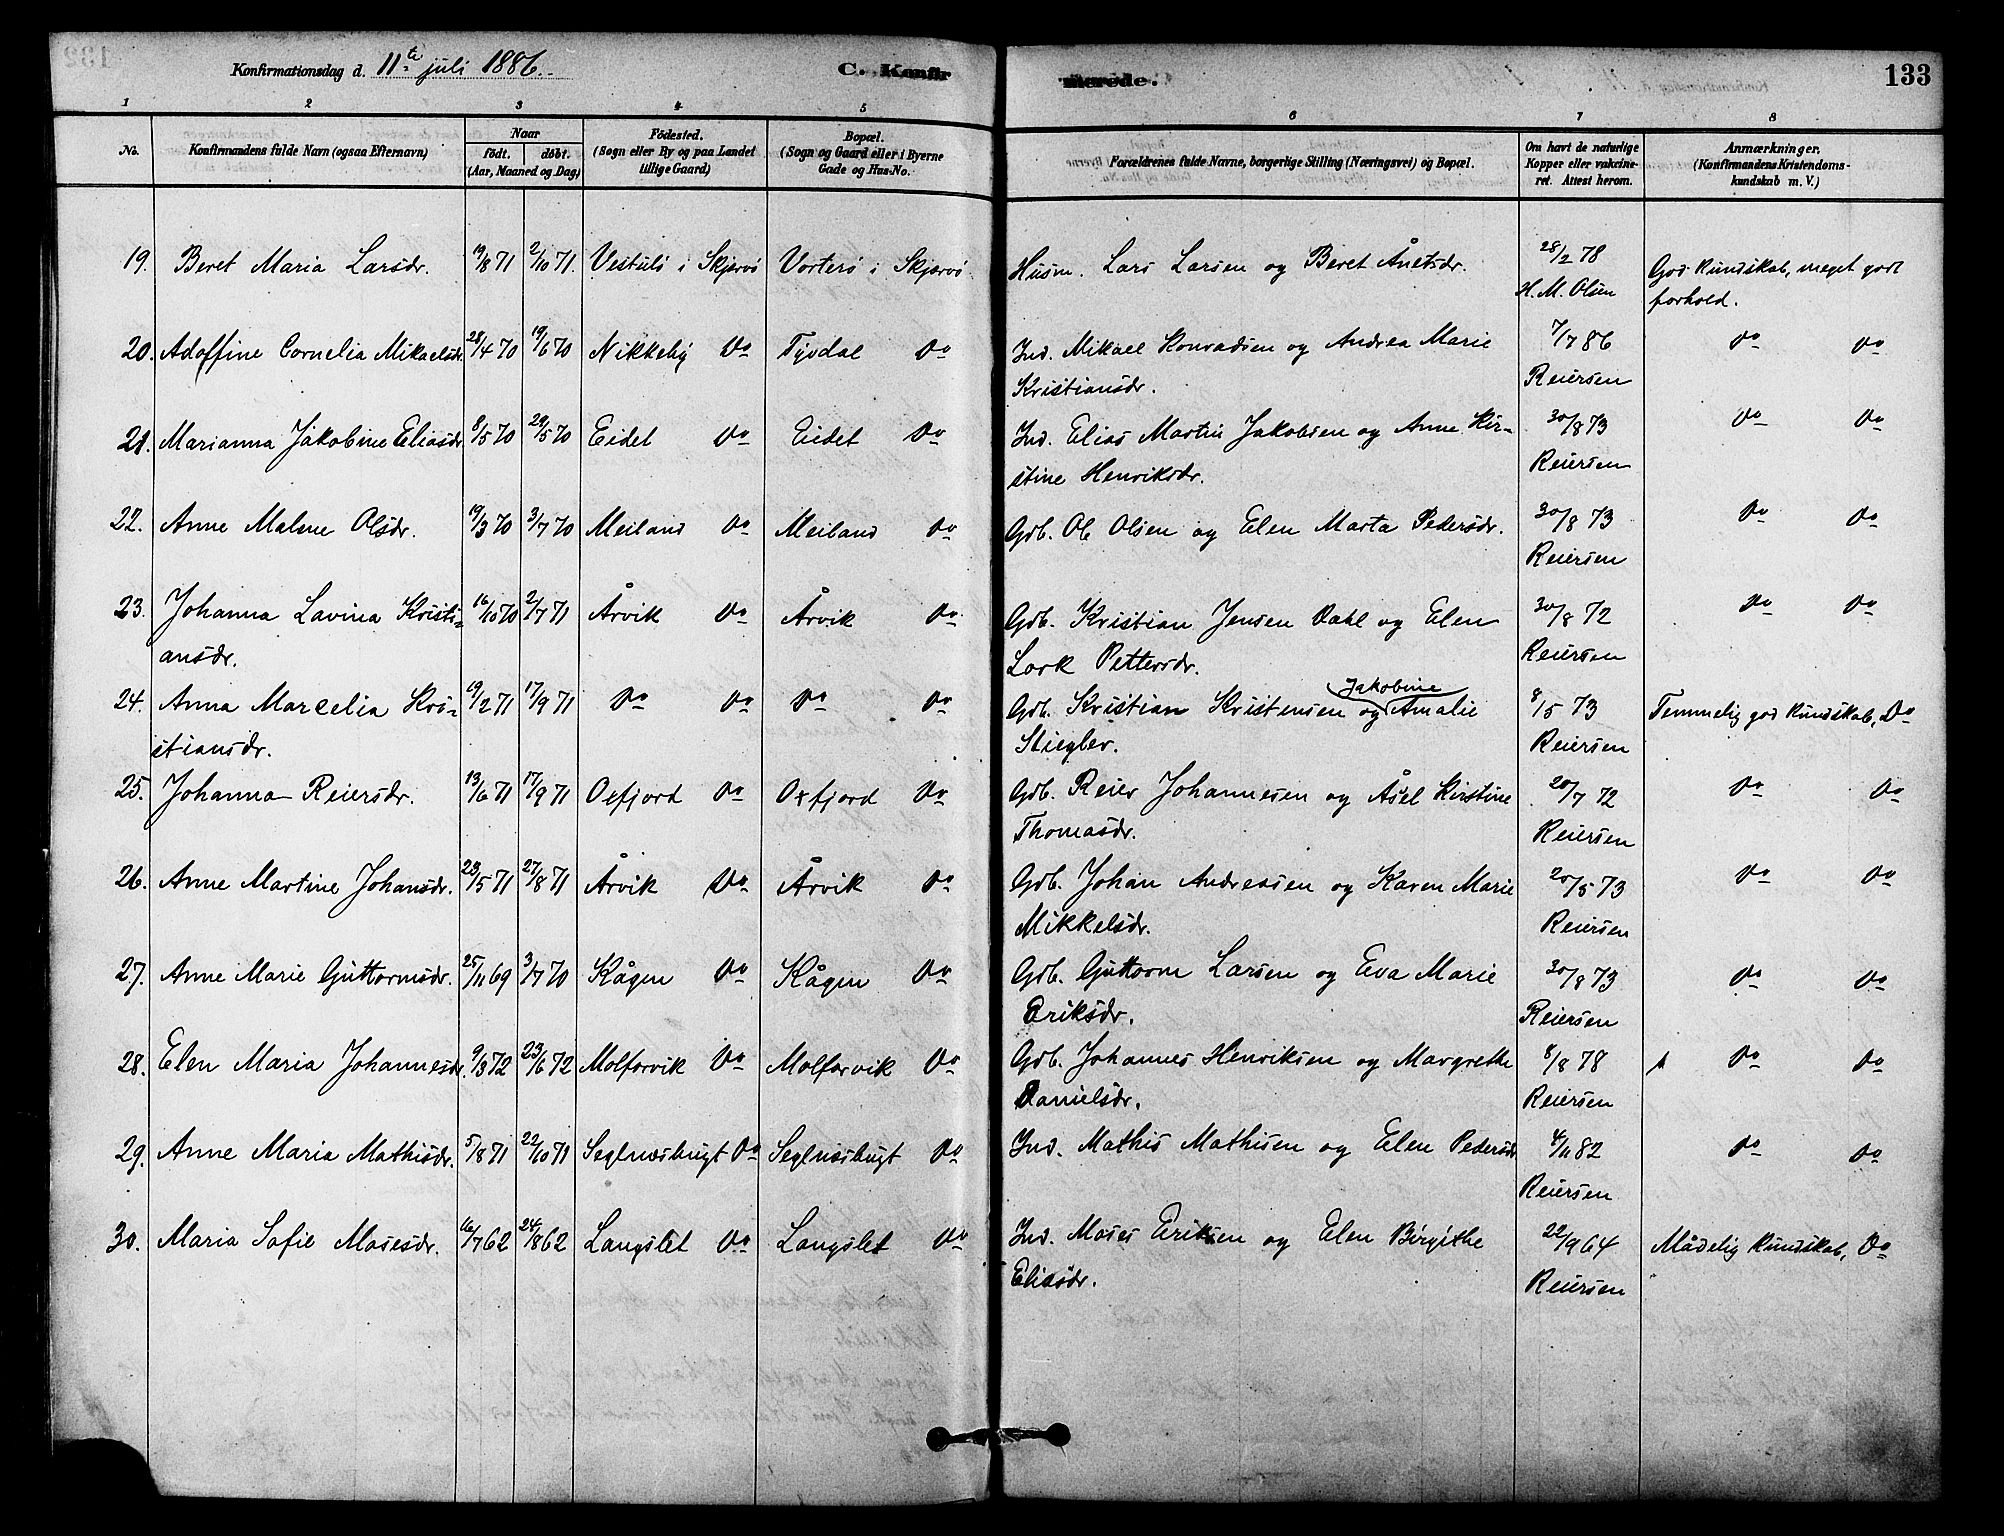 Konfirmationsdag d. 11te juli 1886. C. Konfirmerede. 133
1 2 3 4 5 6 7 8
No. Konfirmandens fulde Navn (ogsaa Efternavn) Naar født. døbt. (Aar, Maaned og Dag) Fødested. (Sogn eller By og paa Landet tillige Gaard) Bopæl. (Sogn og Gaard eller i Byerne Gade og Hus-No. Forældrenes fulde Navne, borgerlige Stilling (Næringsvei) og Bopæl. Om havt de naturlige Kopper eller vakcineret. Attest herom. Anmærkninger. (Konfirmandens Kristendomskundskab m. V.)
19. Beret Maria Larsdr. 19/8 71 2/10 71. Vestulö i Skjervö Vorterö i Skjervö Husm. Lars Larsen og Beret Ånetsdr. 28/2 78 God kundskab, meget godt
H. M. Olsen forhold.
20. Adolfine Cornelia Mikaelsdr 28/4 70 19/6 70 Nikkeby Do Tyvdal Do Ind. Mikael Konradsen og Andrea Marie 7/7 86 Do Do
Kristiansdr. Reiersen
21. Marianna Jakobine Eliasdr 8/5 70 29/5 70 Eidet Do Eidet Do Ind. Elias Martin Jakobsen og Anne Kir- 30/8 73 Do Do
stine Henriksdr. Reiersen
22. Anne Malene Olsdr. 19/3 70 3/7 70 Meiland Do Meiland Do Gdb. Ole Olsen og Elen Marta Pedersdr. 30/8 73 Do Do
Reiersen
23. Johanna Lavina Kristi- 16/10 70 2/7 71 Årvik Do Årvik Do Gdb. Kristian Jensen Dahl og Elen 30/8 72 Do Do
ansdr. Lork Pettersdr. Reiersen
24. Anna Marcelia Kri- 19/2 71 17/9 71 Do Do Do Do Gdb. Kristian Kristensen og Jakobine Amalie 8/5 73 Temmelig god kundskab, Do
stiansdr. Stiegler. Reiersen
25. Johanna Reiersdr. 13/6 71 17/9 71 Oxfjord Do Oxfjord Do Gdb. Reier Johannesen og Åsel Kirstine 20/7 72 Do Do
Thomasdr. Reiersen
26. Anne Martine Johansdr. 23/5 71 27/8 71 Årvik Do Årvik Do Gdb. Johan Andreasen og Karen Marie 20/5 73 Do Do
Mikkelsdr. Reiersen
27. Anne Marie Guttormsdr. 25/11 69 3/7 70 Kågen Do Kågen Do Gdb. Guttorm Larsen og Eva Marie 30/8 73 Do Do
Eriksdr. Reiersen
28. Elen Maria Johannesdr. 9/3 72 23/6 72 Molforvik Do Molforvik Do Gdb. Johannes Henriksen og Margrethe 8/8 78 Do Do
Danielsdr. Reiersen
29. Anne Maria Mathisdr. 5/8 71 22/10 71 Seglnæsbugt Do Seglnæsbugt Do Ind. Mathis Mathisen og Elen Pedersdr 4/11 82 Do Do
Reiersen
30. Maria Sofie Mosesdr. 16/7 62 24/8 62 Langslet Do Langslet Do Ind. Moses Eriksen og Elen Birgithe 22/9 64 Mådelig kundskab, Do
Eliasdr. Reiersen